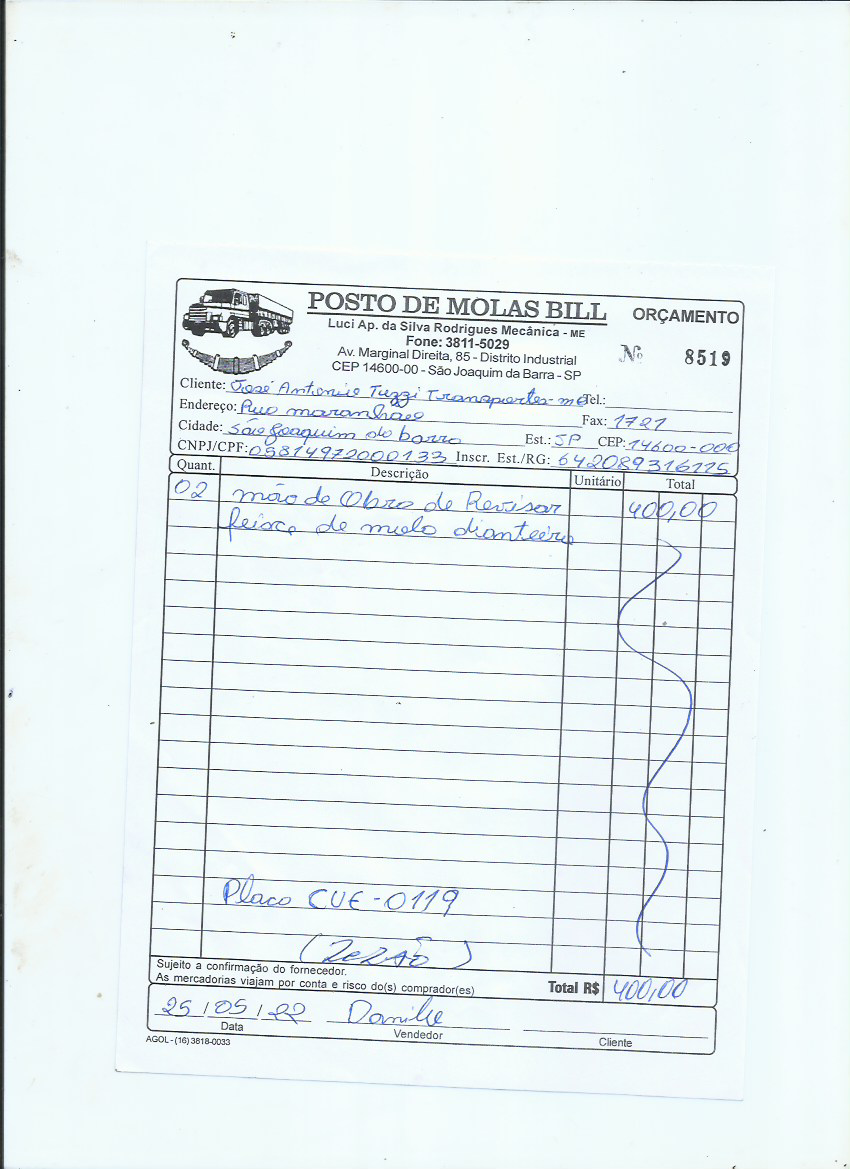 POSTO DE MOLAS BILL
ORÇAMENTO
Luci Ap. da Silva Rodrigues Mecânica - ME
Fone: 3811-5029
Nº 8519
Av. Marginal Direita, 85 - Distrito Industrial
CEP 14600-00 - São Joaquim da Barra - SP
Cliente: José Antonio Tuzzi Transportes-me Tel.:
Endereço: Rua maranhao Fax: 1721
Cidade: São Joaquim da barra Est.: SP CEP: 14600-000
CNPJ/CPF: 05814972000133 Inscr. Est./RG: 642089316115
Quant. Descrição Unitário Total
02 mão de Obra de Revisar 400,00
feixe de mola dianteira
Placa CUE-0119
(ZEZÃO)
Sujeito a confirmação do fornecedor.
As mercadorias viajam por conta e risco do(s) comprador(es)
Total R$ 400,00
25/05/22
Data
Vendedor
Cliente
AGOL - (16) 3818-0033